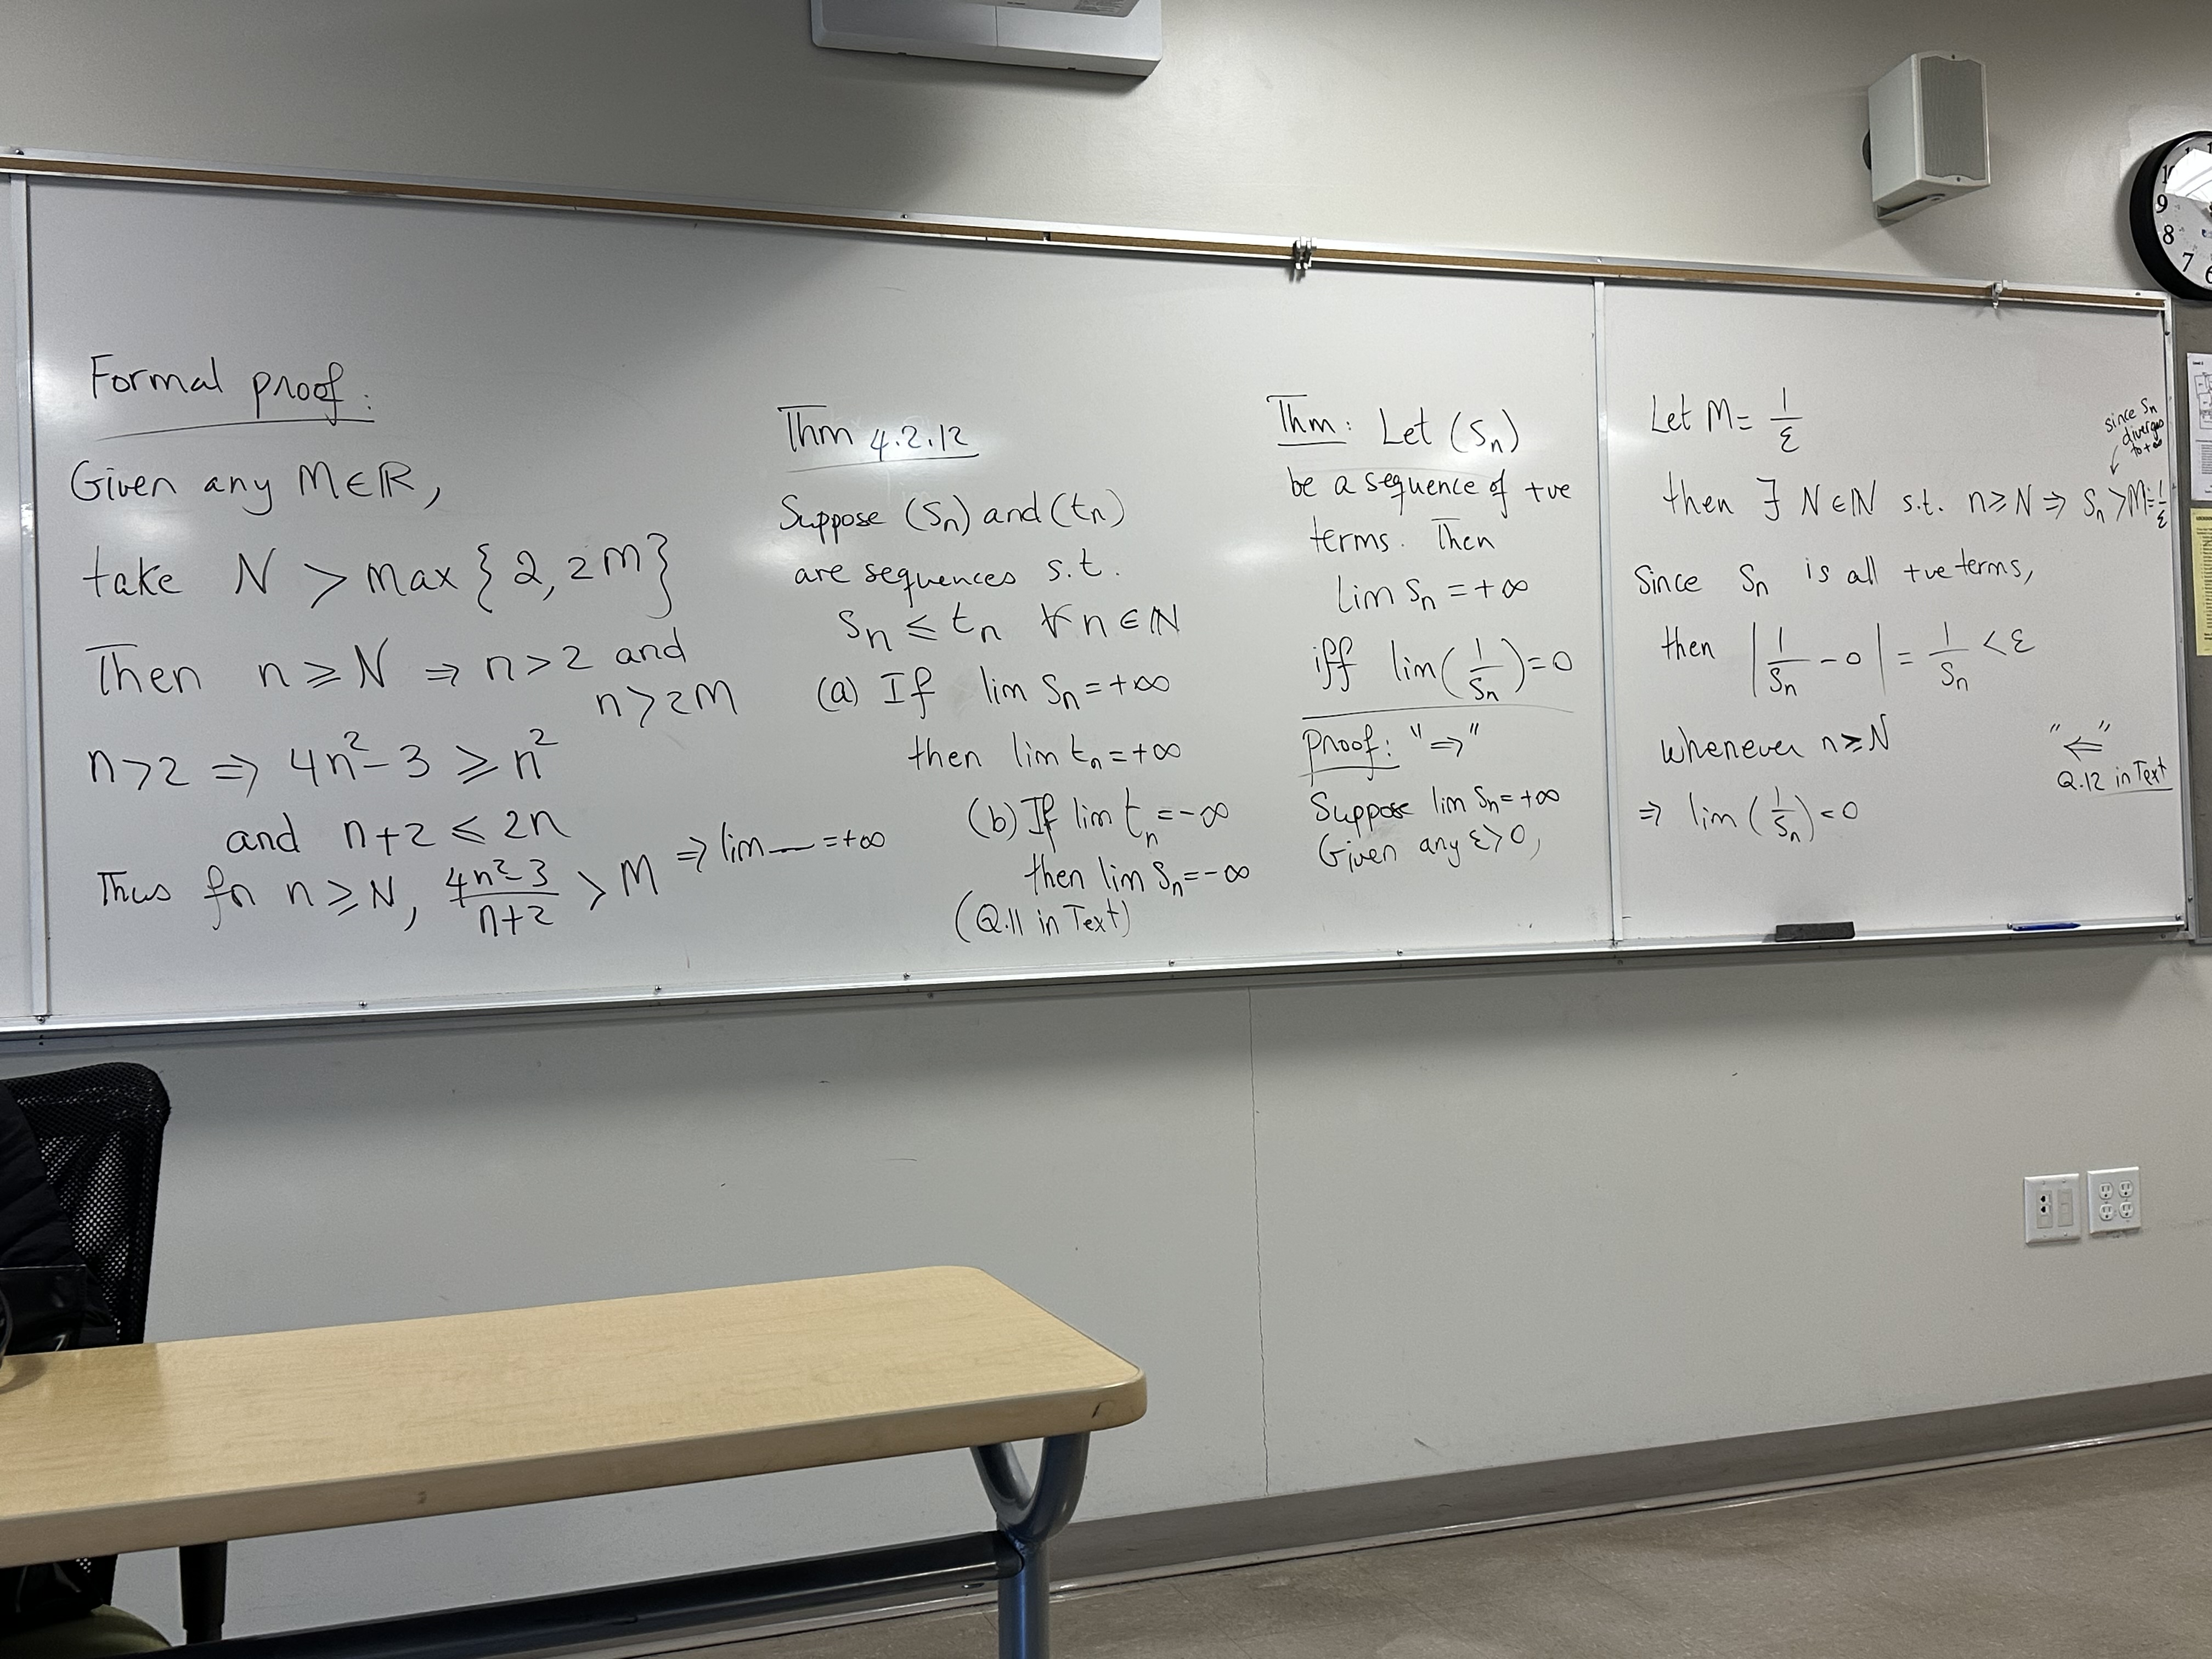 Formal proof:
Given any M∈ℝ,
take N > max{2, 2M}
Then n ≥ N ⇒ n>2 and
n>2M
n>2 ⇒ 4n²-3 ≥ n²
and n+2 ≤ 2n
Thus for n ≥ N, (4n²-3)/(n+2) > M ⇒ lim — = +∞
Thm 4.2.12
Suppose (Sn) and (tn)
are sequences s.t.
Sn ≤ tn ∀ n ∈ ℕ
(a) If lim Sn = +∞
then lim tn = +∞
(b) If lim tn = -∞
then lim Sn = -∞
(Q.11 in Text)
Thm: Let (Sn)
be a sequence of +ve
terms. Then
lim Sn = +∞
iff lim(1/Sn) = 0
Proof: "⇒"
Suppose lim Sn = +∞
Given any ε>0,
Let M = 1/ε
since Sn
diverges
to +∞
then ∃ N∈ℕ s.t. n≥N ⇒ Sn > M = 1/ε
Since Sn is all +ve terms,
then |1/Sn - 0| = 1/Sn < ε
whenever n≥N
⇒ lim (1/Sn) = 0
"⇐"
Q.12 in Text
9
8
7
6